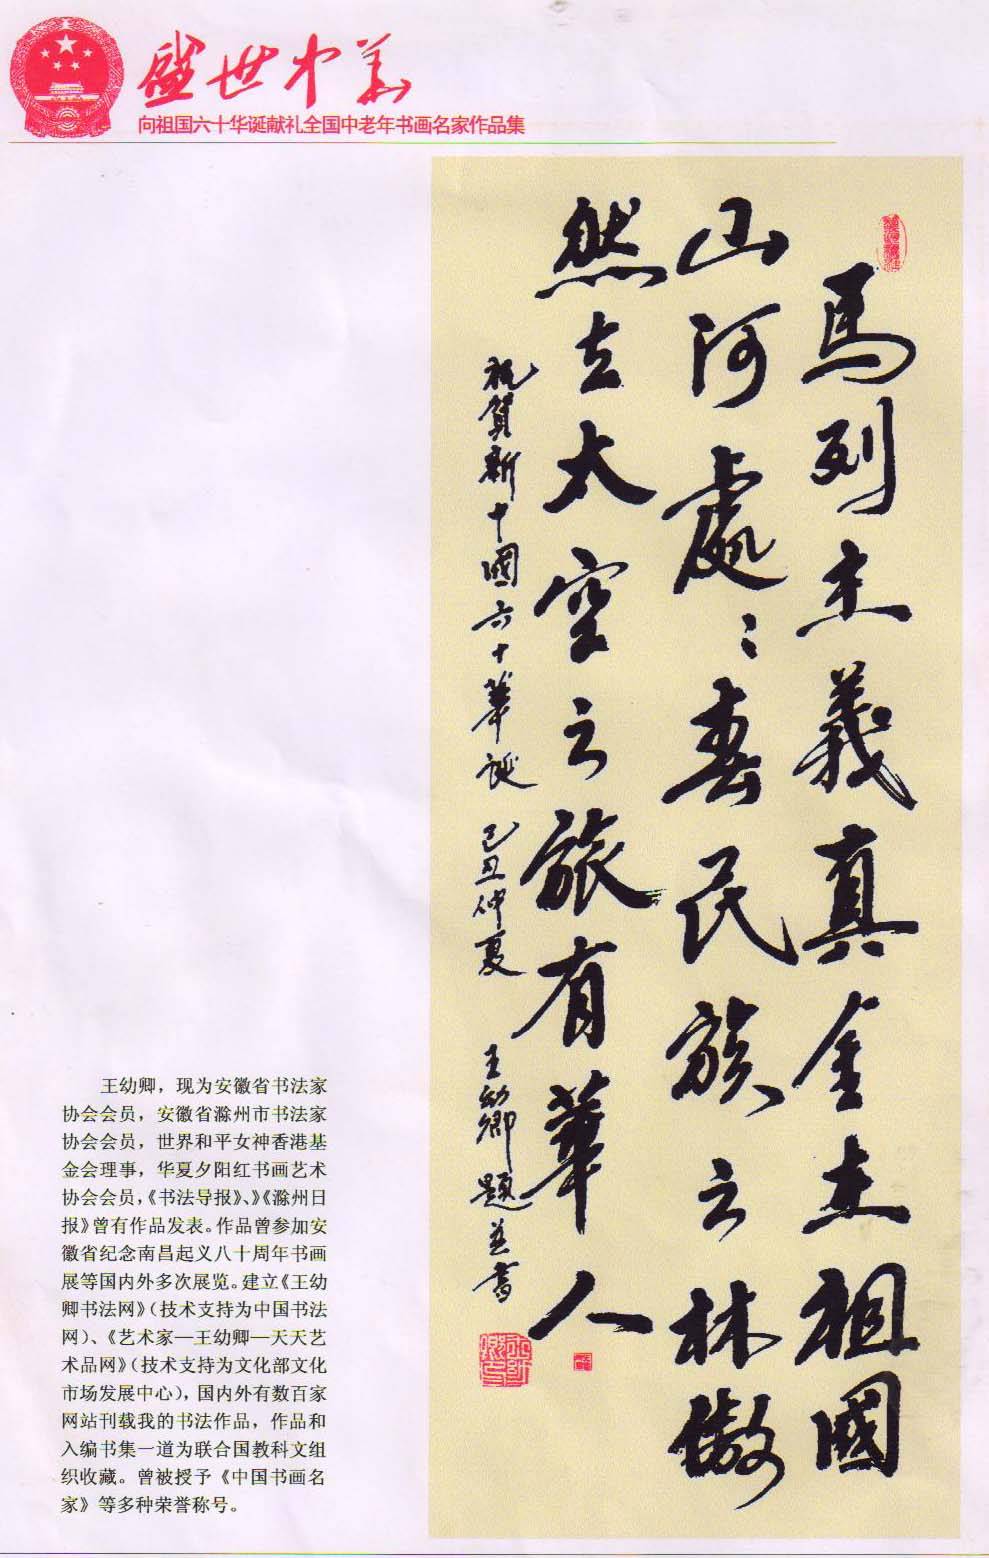 盛世中华
向祖国六十华诞献礼全国中老年书画名家作品集
馬列主義真金祖國
山河處〻春民族之林傲
然立太空之旅有華人
祝賀新中國六十華誕 己丑仲夏 王幼卿題並書
王幼卿，现为安徽省书法家
协会会员，安徽省滁州市书法家
协会会员，世界和平女神香港基
金会理事，华夏夕阳红书画艺术
协会会员，《书法导报》、》《滁州日
报》曾有作品发表。作品曾参加安
徽省纪念南昌起义八十周年书画
展等国内外多次展览。建立《王幼
卿书法网》（技术支持为中国书法
网）、《艺术家—王幼卿—天天艺
术品网》（技术支持为文化部文化
市场发展中心），国内外有数百家
网站刊载我的书法作品，作品和
入编书集一道为联合国教科文组
织收藏。曾被授予《中国书画名
家》等多种荣誉称号。